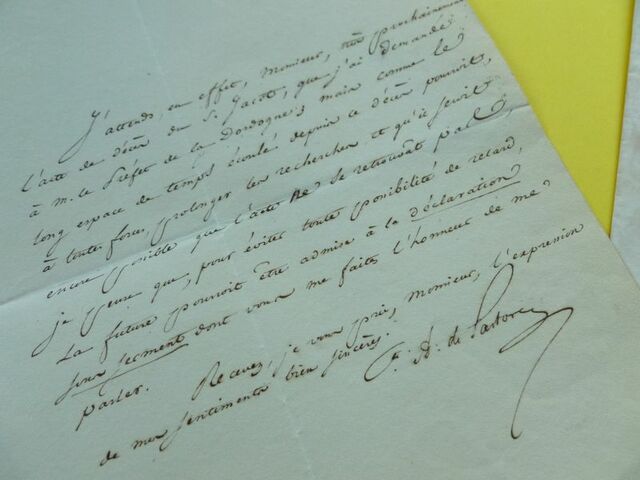 J'attends, en effet, Monsieur, très prochainement
l'acte de décès du Sr. Gacot, que j'ai demandé
à M. le Préfet de la Dordogne; mais comme le
long espace de temps écoulé depuis ce décès pourroit,
à toute force, prolonger les recherches, et qu'il seroit
encore possible que l'acte ne se retrouvât pas,
je pense que, pour éviter toute possibilité de retard,
La future pourroit être admise à la déclaration
sous serment dont vous me faites l'honneur de me
parler. Recevez, je vous prie, Monsieur, l'expression
de mes sentiments bien sincères.
A. de Pastoret